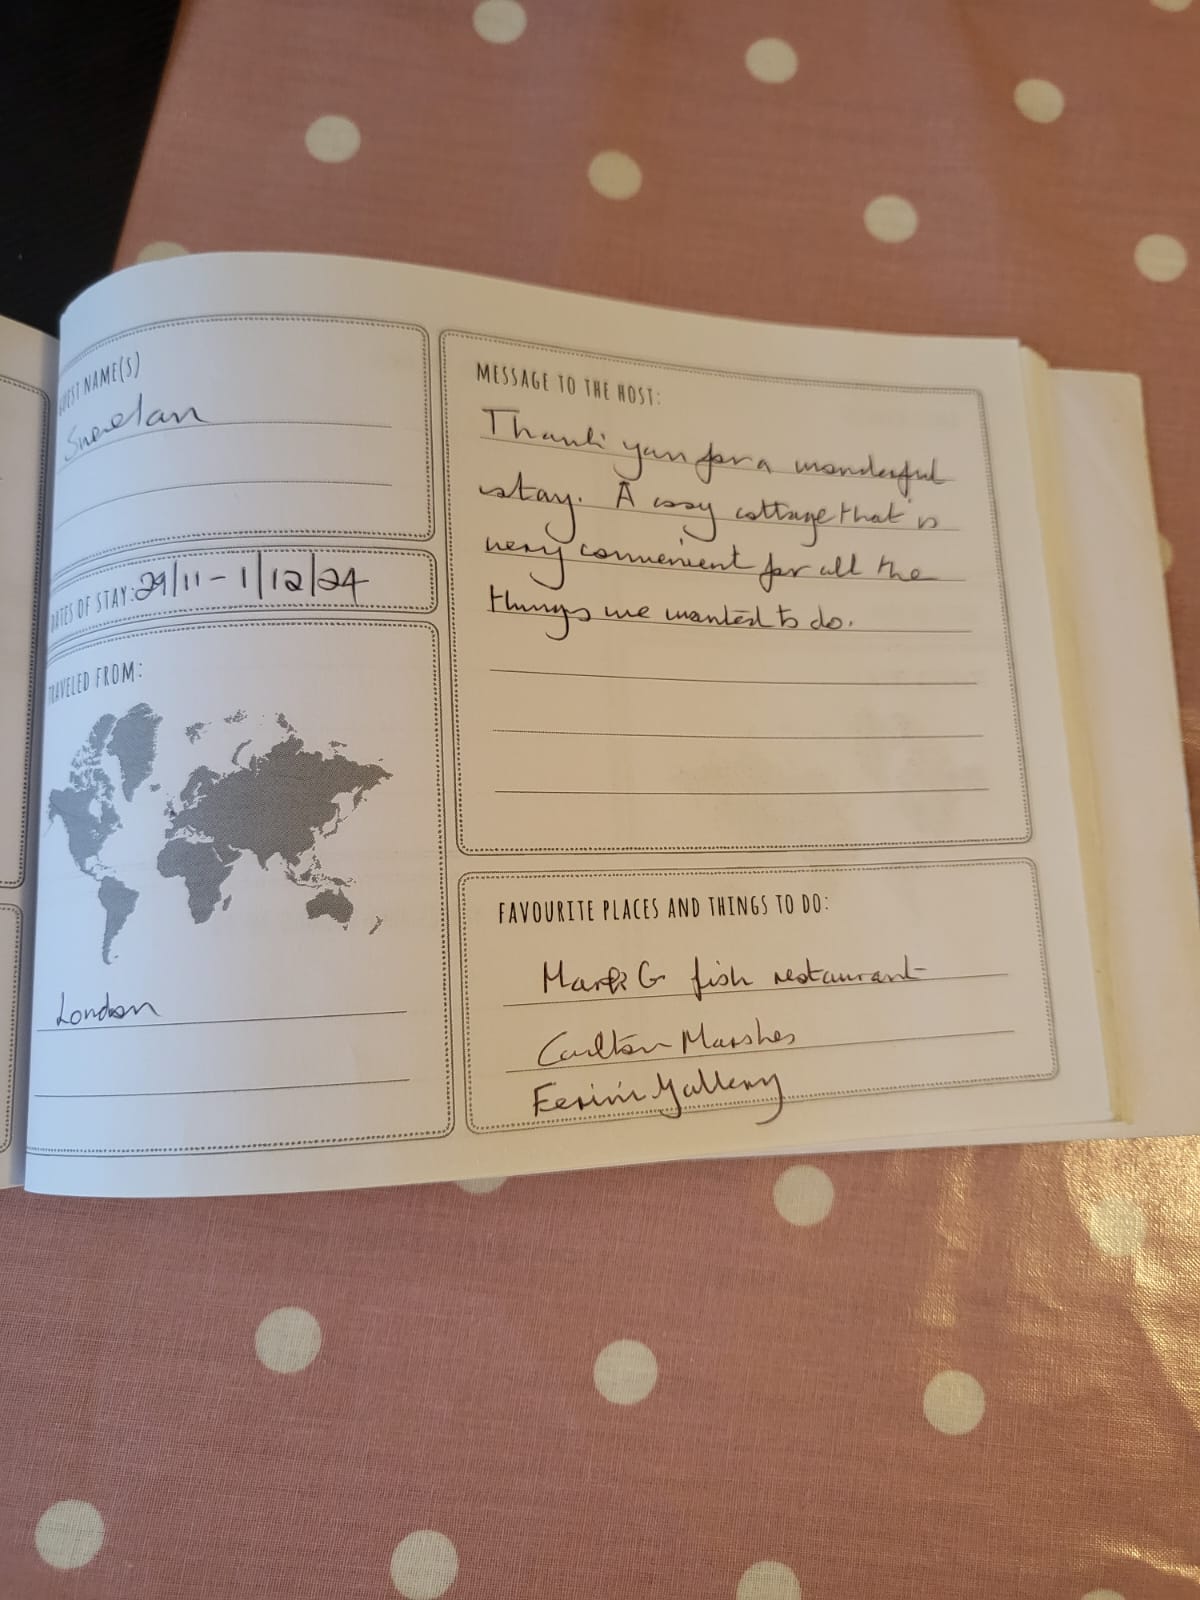 GUEST NAME(S)
DATES OF STAY: 29/11 - 1/12/24
TRAVELED FROM:
London
MESSAGE TO THE HOST:
Thank you for a wonderful
stay. A cosy cottage that is
very convenient for all the
things we wanted to do.
FAVOURITE PLACES AND THINGS TO DO:
Mark G fish restaurant
Carlton Marshes
Ferini Gallery